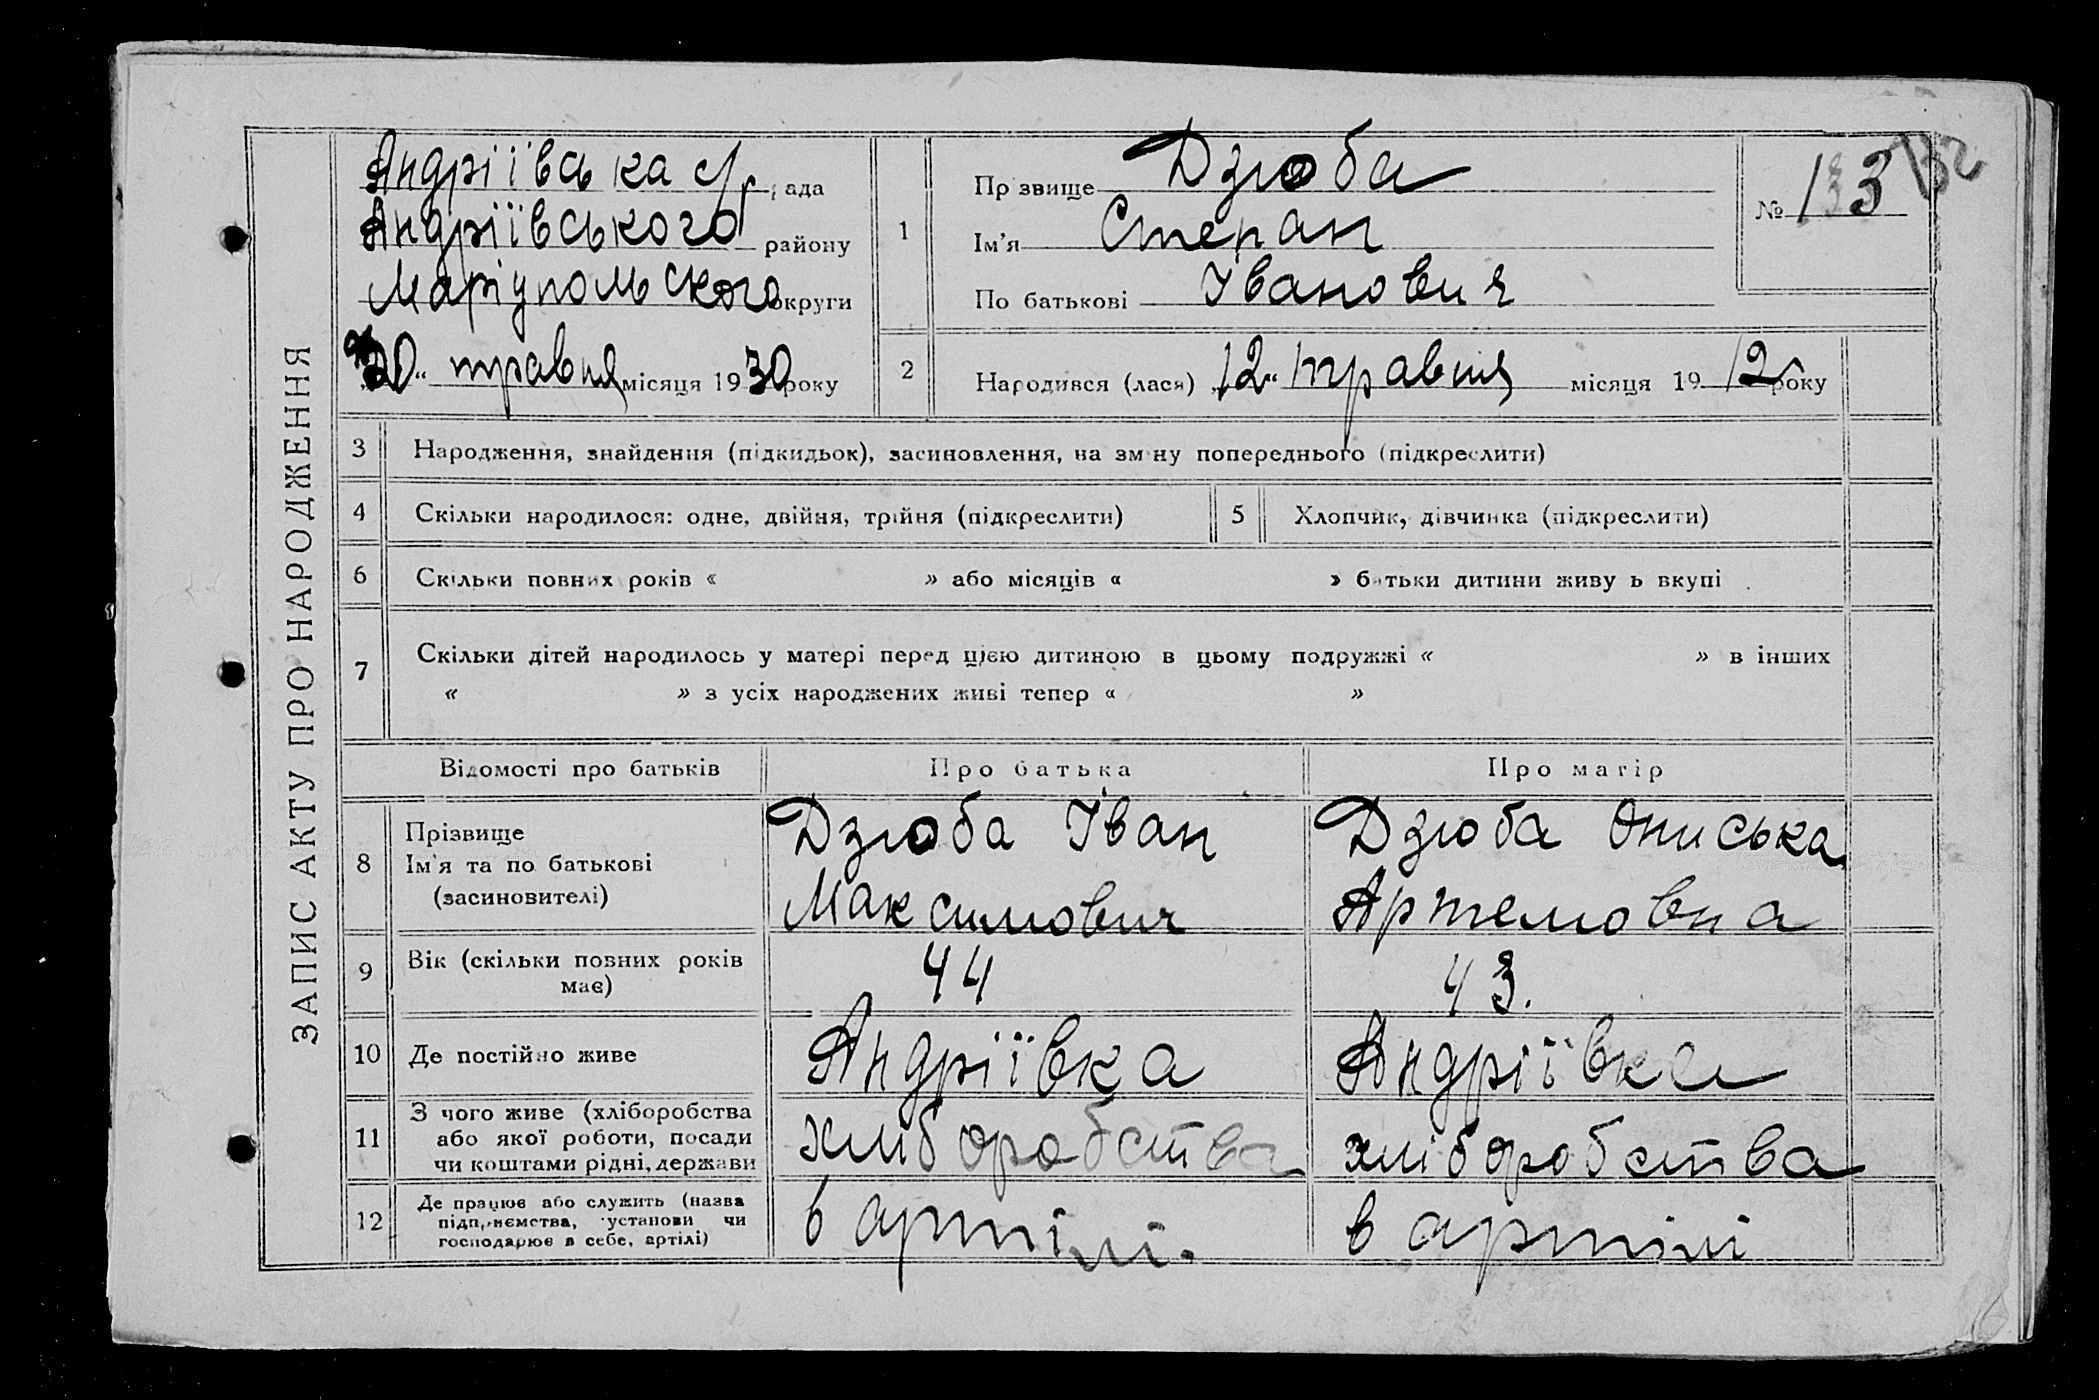 ЗАПИС АКТУ ПРО НАРОДЖЕННЯ
Андріївська с/р рада
Андріївського району
Маріупольського округи
20 " травня місяця 1930 року
1
Прізвище Дзюба
Ім'я Степан
По батькові Іванович
№ 133
2
Народився (лася) 12 " травня місяця 19 12 року
3 Народження, знайдення (підкидьок), засиновлення, на зміну попереднього (підкреслити)
4 Скільки народилося: одне, двійня, трійня (підкреслити)
5 Хлопчик, дівчинка (підкреслити)
6 Скільки повних років « » або місяців « » батьки дитини живуть вкупі
7 Скільки дітей народилось у матері перед цією дитиною в цьому подружжі « » в інших
« » з усіх народжених живі тепер « »
Відомості про батьків Про батька Про матір
8 Прізвище
Ім'я та по батькові
(засиновителі)
Дзюба Іван
Максимович
Дзюба Ониська
Артемовна
9 Вік (скільки повних років
має)
44
43.
10 Де постійно живе Андріївка Андріївка
11 З чого живе (хліборобства
або якої роботи, посади
чи коштами рідні, держави
хліборобства хліборобства
12 Де працює або служить (назва
підприємства, установи чи
господарює в себе, артілі)
в артілі. в артілі